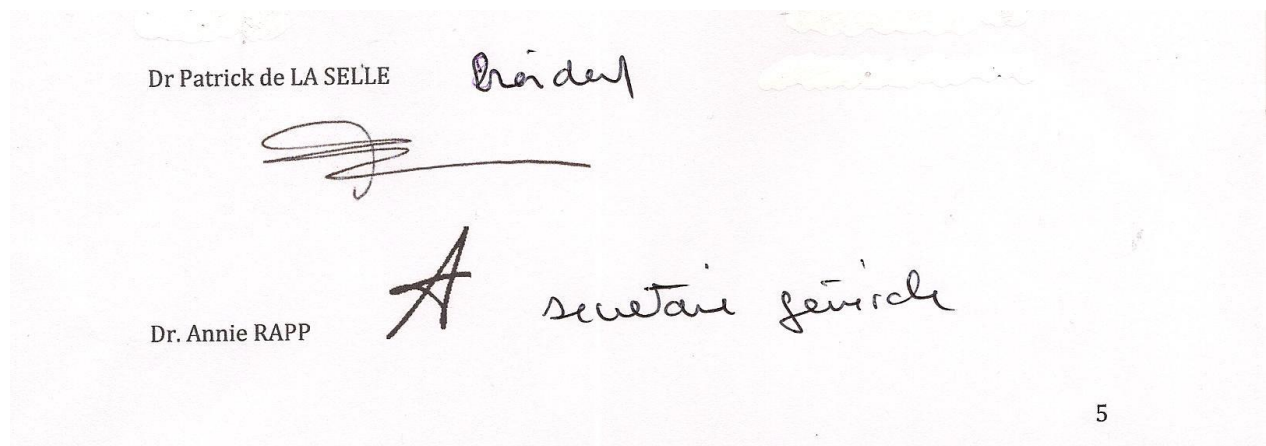 Dr Patrick de LA SELLE Président
Dr. Annie RAPP secrétaire générale
5